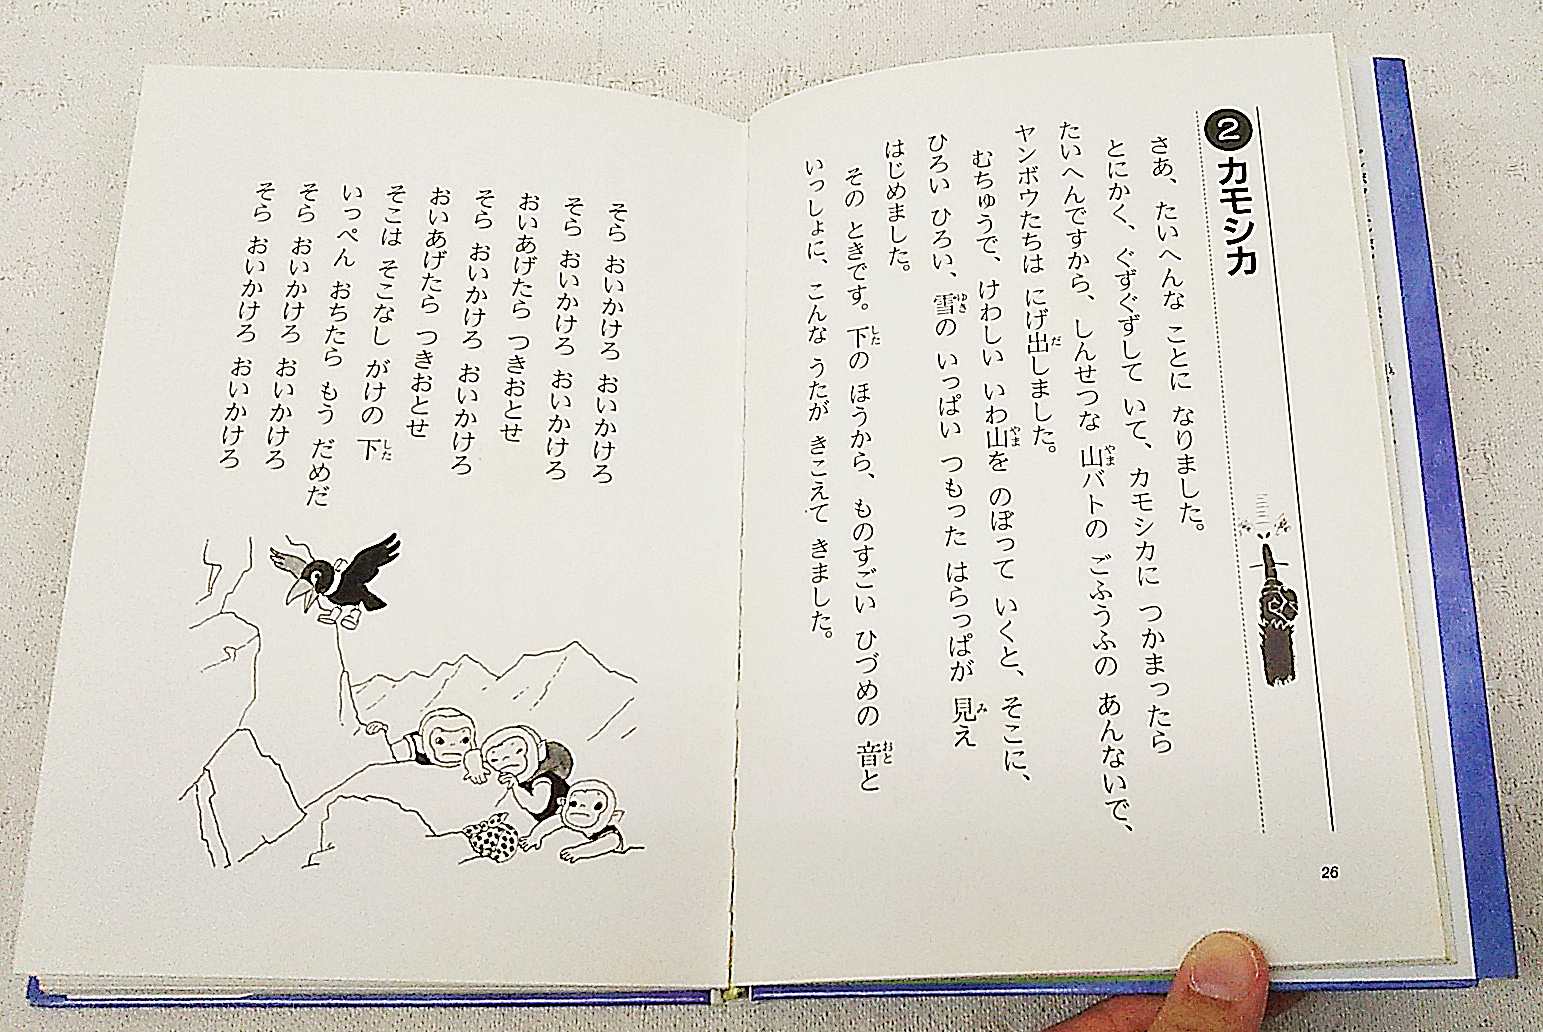 2 カモシカ
さあ、たいへんな ことに なりました。
とにかく、ぐずぐずして いて、カモシカに つかまったら
たいへんですから、しんせつな 山バトの ごふうふの あんないで、
ヤンボウたちは にげ出しました。
むちゅうで、けわしい いわ山を のぼって いくと、そこに、
ひろい ひろい、雪の いっぱい つもった はらっぱが 見え
はじめました。
その ときです。下の ほうから、ものすごい ひづめの 音と
いっしょに、こんな うたが きこえて きました。
26
そら おいかけろ おいかけろ
そら おいかけろ おいかけろ
おいあげたら つきおとせ
そら おいかけろ おいかけろ
おいあげたら つきおとせ
そこは そこなし がけの 下
いっぺん おちたら もう だめだ
そら おいかけろ おいかけろ
そら おいかけろ おいかけろ